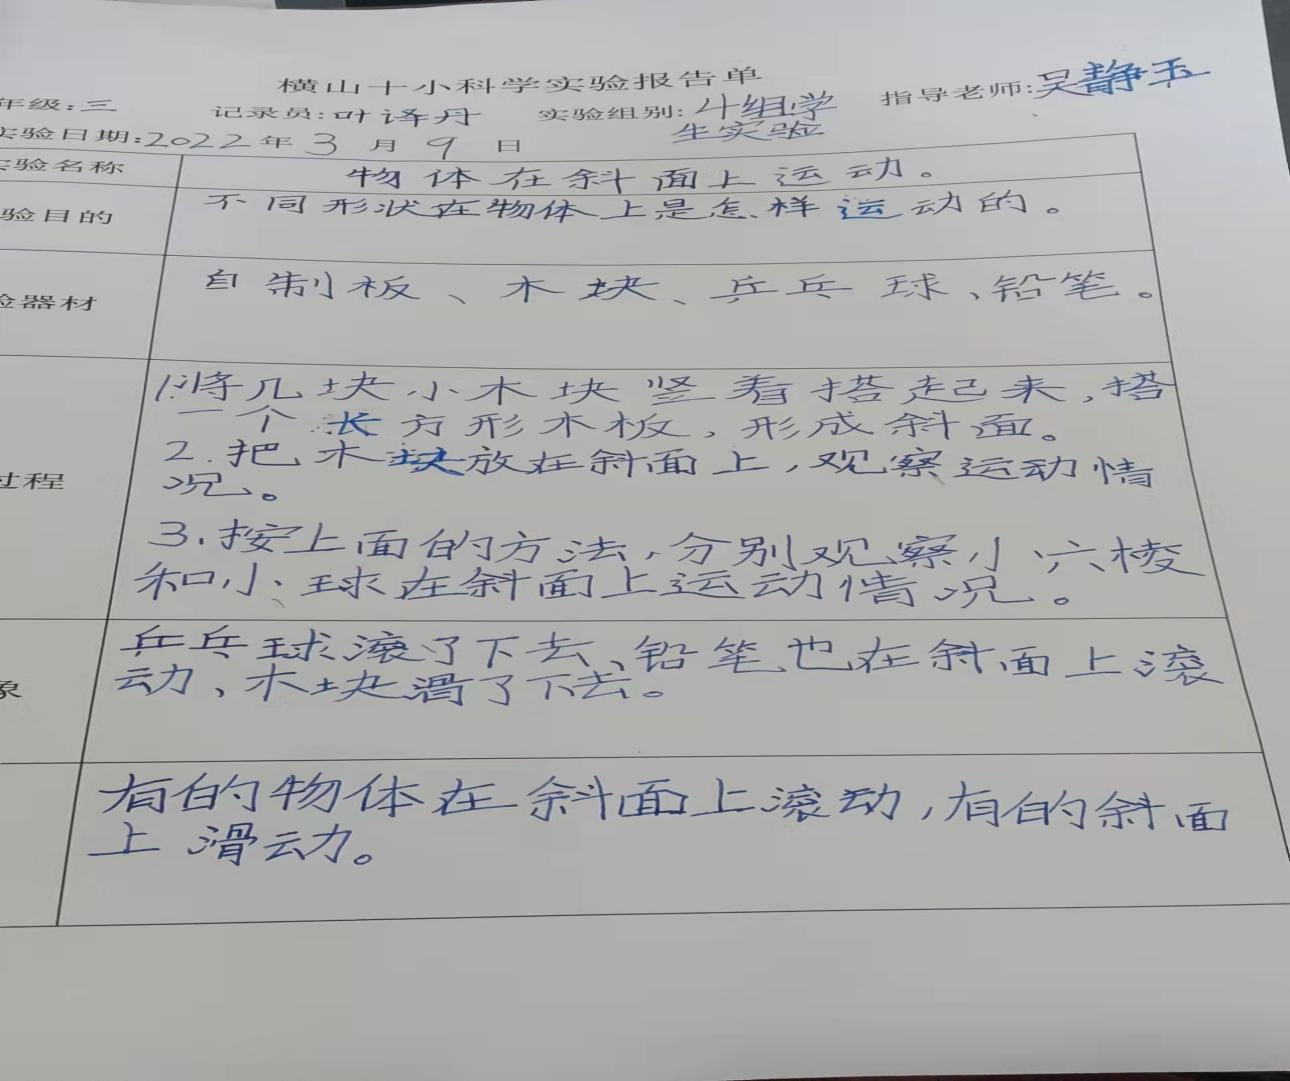 横山十小科学实验报告单
年级:三 记录员:叶译丹 实验组别:4组学生实验 指导老师:吴静玉
实验日期:2022年3月9日
实验名称 物体在斜面上运动。
验目的 不同形状在物体上是怎样运动的。
验器材 自制板、木块、乒乓球、铅笔。
1.将几块小木块竖着搭起来,搭
一个长方形木板,形成斜面。
2.把木块放在斜面上,观察运动情
过程 况。
3.按上面的方法,分别观察小六棱
和小球在斜面上运动情况。
乒乓球滚了下去、铅笔也在斜面上滚
象 动、木块滑了下去。
有的物体在斜面上滚动,有的斜面
上滑动。